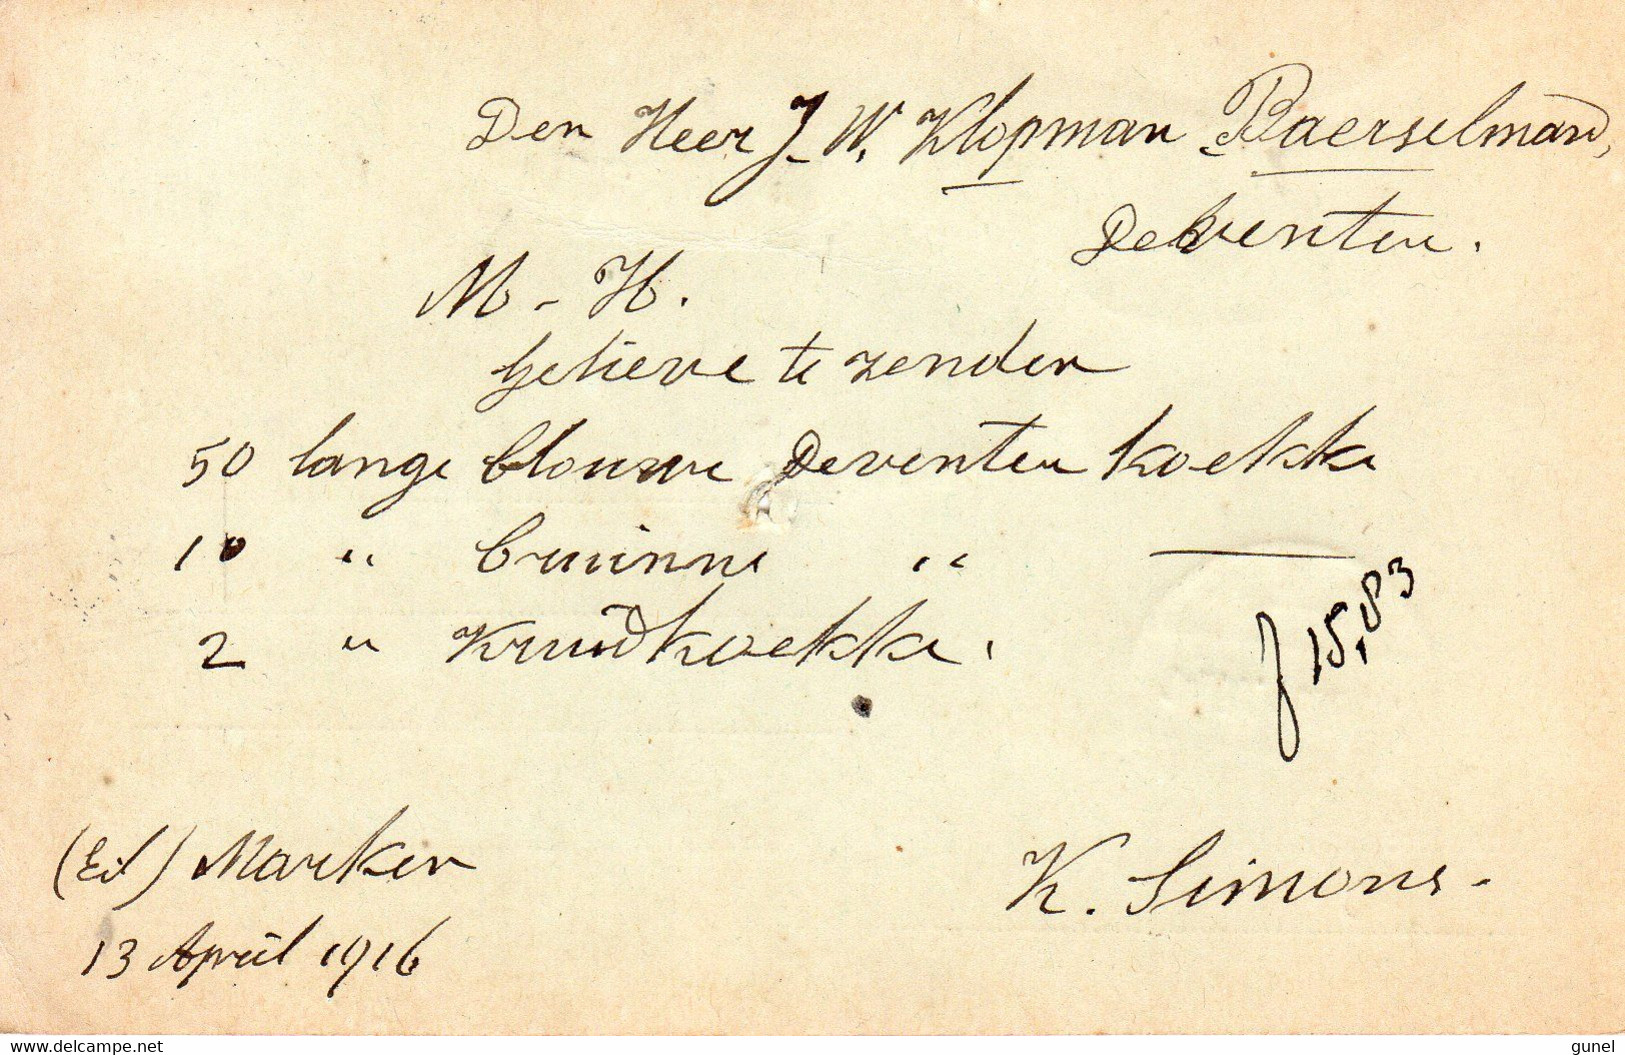 Den Heer J. W. Klopman Baerselman,
Deventer.
M - H.
Gelieve te zenden
50 lange blouwe Deventer koekke
10 " bruinne "
2 " Kruidkoekke.
f 15,83
(Eil) Marken
13 April 1916
K. Simons -
www.delcampe.net
gunel